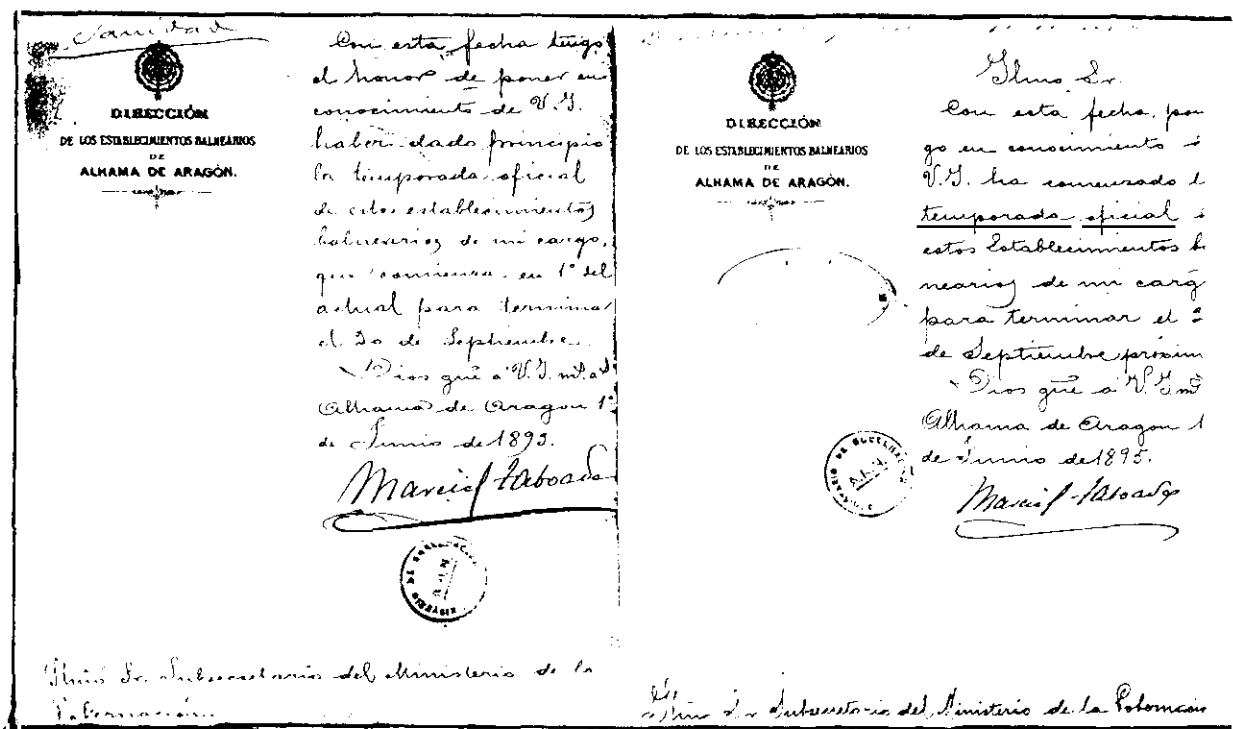 Sanidad
DIRECCIÓN
DE LOS ESTABLECIMIENTOS BALNEARIOS
DE
ALHAMA DE ARAGÓN.
Con esta fecha tengo
el honor de poner en
conocimiento de V.I.
haber dado principio
la temporada oficial
de estos establecimientos
balnearios de mi cargo,
que comienza en 1º del
actual para terminar
el 30 de Septiembre.
Dios gue a V.I. m. a.
Alhama de Aragon 1º
de Junio de 1893.
Marcial Taboada
Ilmo Sr. Subsecretario del Ministerio de la
Gobernación
DIRECCIÓN
DE LOS ESTABLECIMIENTOS BALNEARIOS
DE
ALHAMA DE ARAGÓN.
Ilmo Sr.
Con esta fecha, pon
go en conocimiento
V.I. ha comenzado l
temporada oficial
estos Establecimientos b
nearios de mi carg
para terminar el
de Septiembre próxim
Dios gue a V.I. m
Alhama de Aragon 1
de Junio de 1895.
Marcial Taboada
Ilmo Sr Subsecretario del Ministerio de la Gobernación